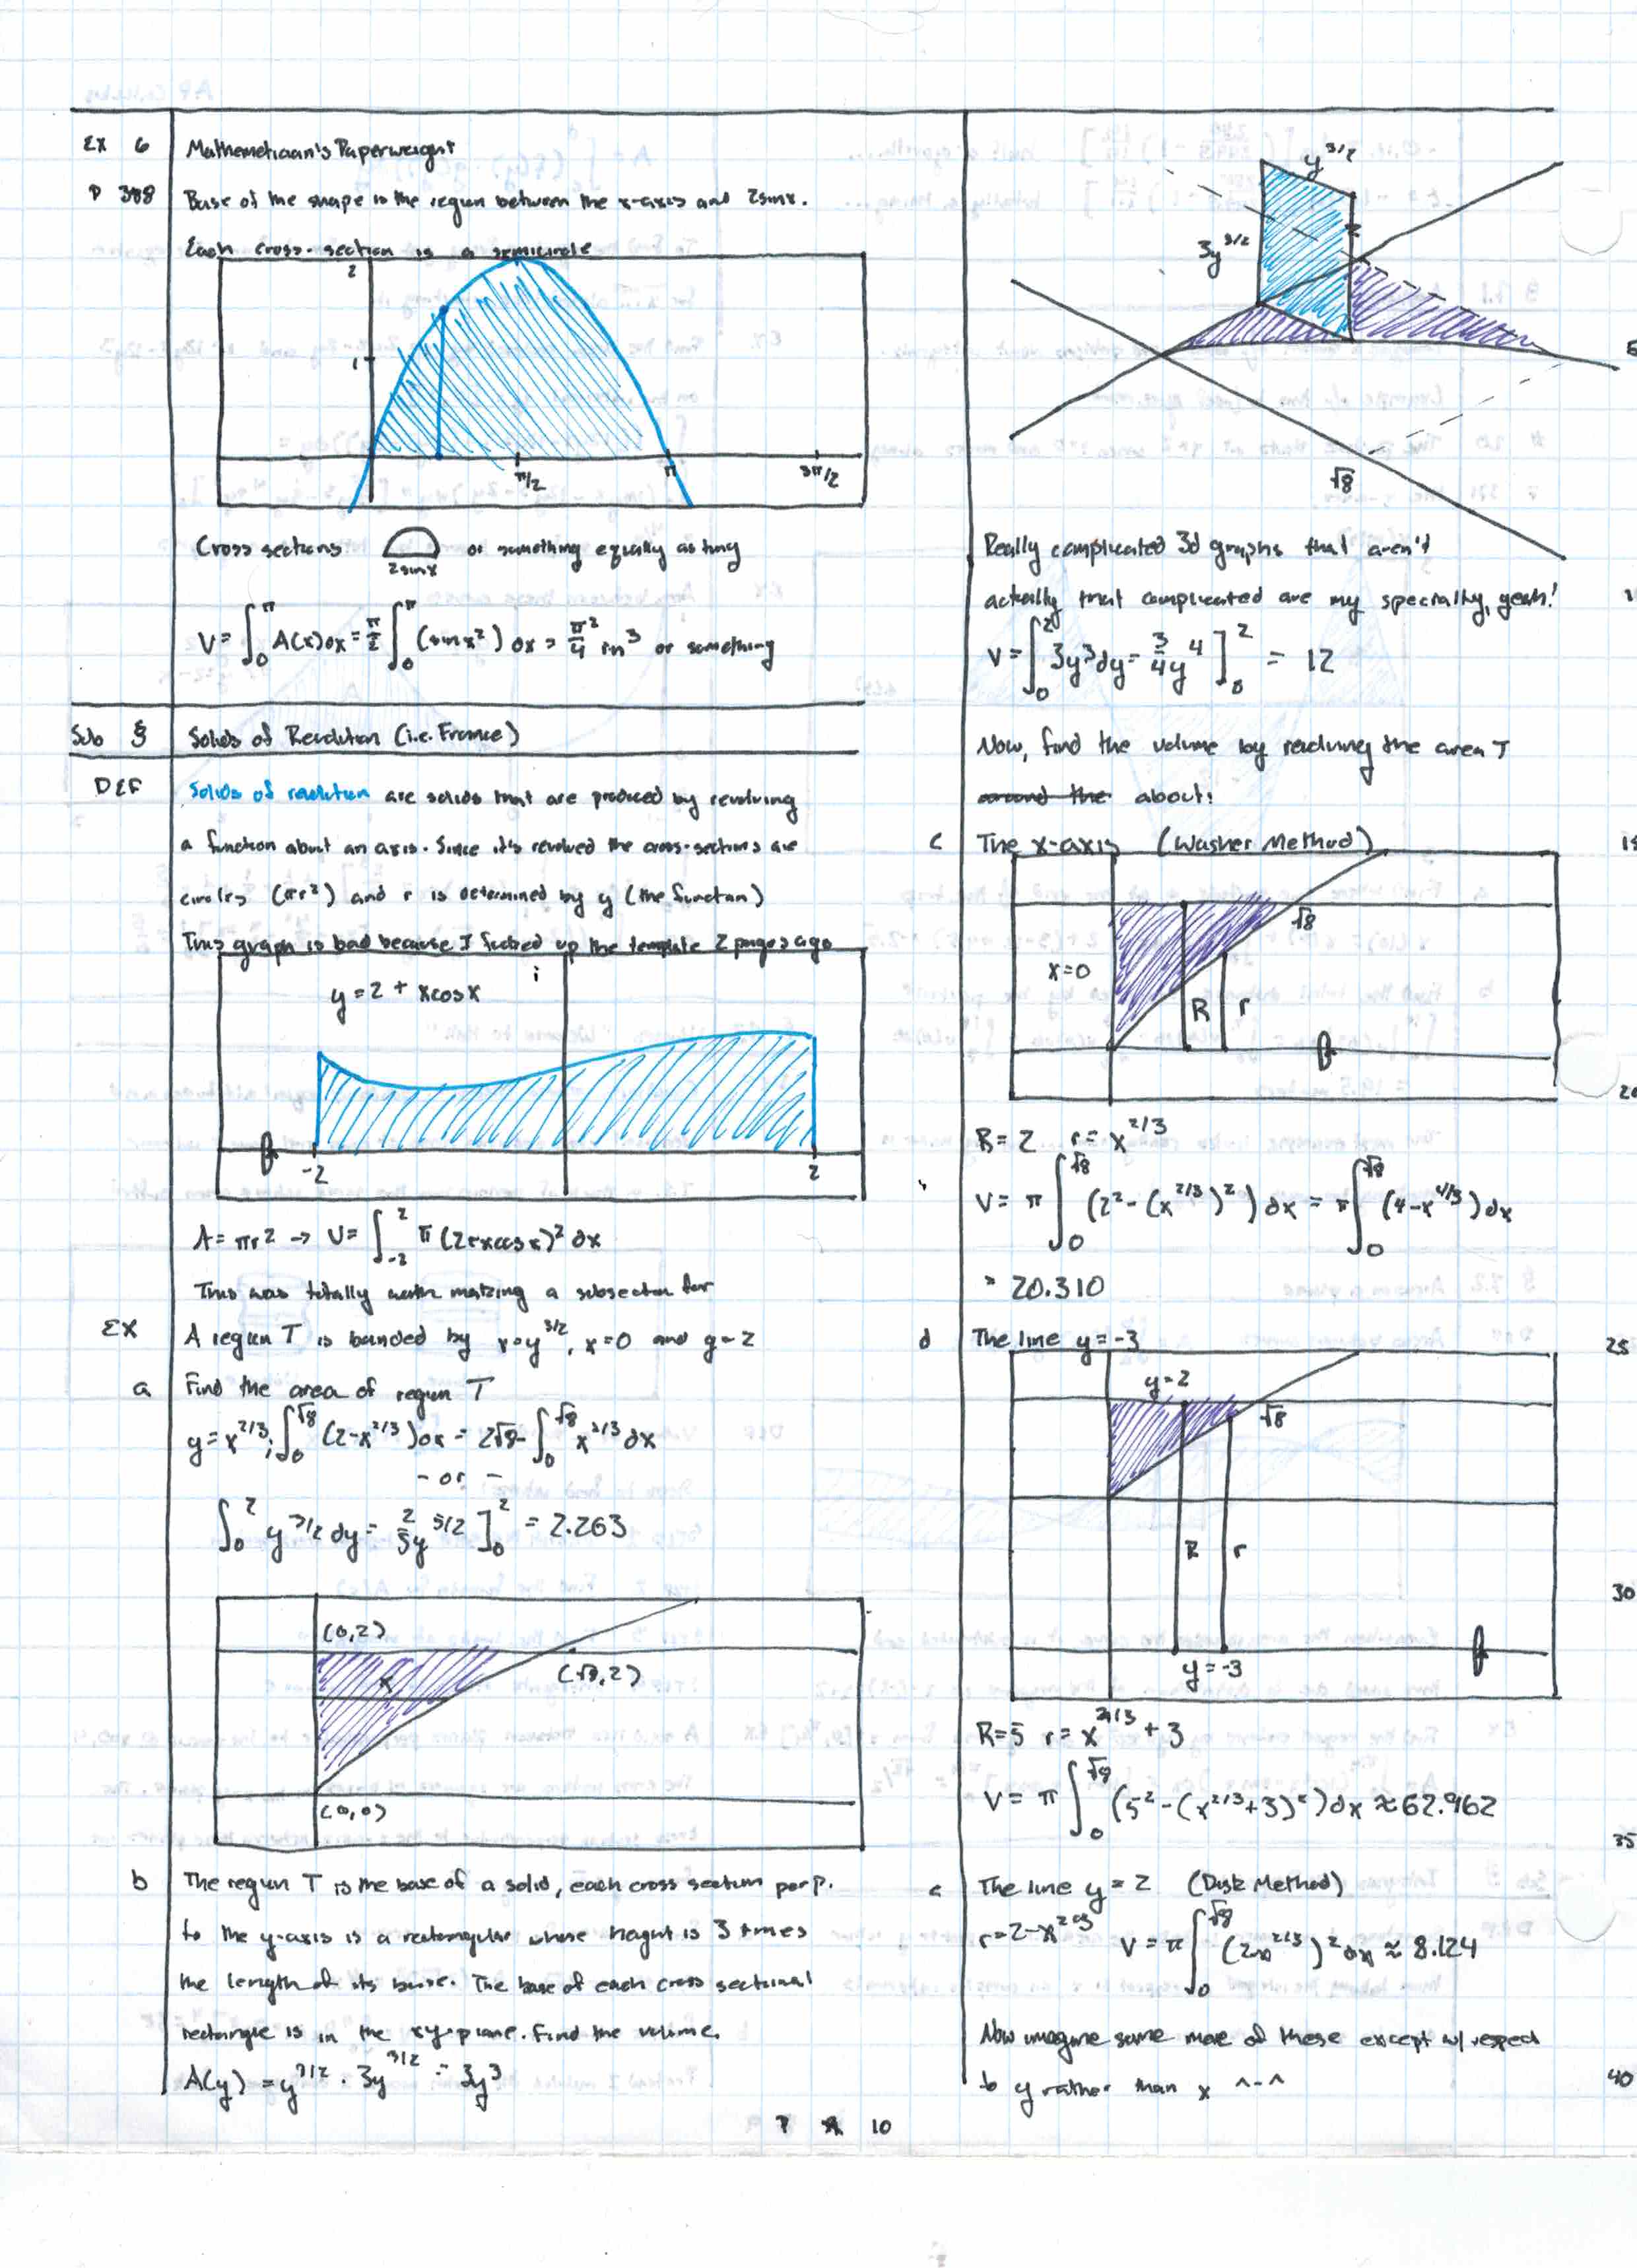 Ex 6 Mathematician's Paperweight
P 388 Base of the shape is the region between the x-axis and 2sinx.
Each cross-section is a semicircle
2
1
π/2 π 3π/2
Cross sections 2sinx or something equally as tiny
V = ∫₀^π A(x)dx = π/2 ∫₀^π (sinx²) dx = π²/4 in³ or something
Sub § Solids of Revolution (i.e. France)
DEF Solids of revolution are solids that are produced by revolving
a function about an axis. Since it's revolved the cross-sections are
circles (πr²) and r is determined by y (the function)
This graph is bad because I fucked up the template 2 pages ago
y = 2 + xcosx
-2 2
A = πr² → V = ∫₋₂² π (2+xcosx)² dx
This was totally worth making a subsection for
EX A region T is bounded by x=y^3/2, x=0 and y=2
a Find the area of region T
y = x^2/3; ∫₀^√8 (2-x^2/3)dx = 2√8 - ∫₀^√8 x^2/3 dx
- or -
∫₀² y^3/2 dy = 2/5 y^5/2 ]₀² = 2.263
(0,2)
(√8,2)
(0,0)
b The region T is the base of a solid, each cross section perp.
to the y-axis is a rectangular whose height is 3 times
the length of its base. The base of each cross sectional
rectangle is in the xy-plane. Find the volume.
A(y) = y^3/2 · 3y^3/2 = 3y³
y^3/2
3y^3/2
2
√8
Really complicated 3d graphs that aren't
actually that complicated are my specialty, yeah!
V = ∫₀² 3y³dy = 3/4 y⁴ ]₀² = 12
Now, find the volume by revolving the area T
around the about:
c The x-axis (Washer Method)
√8
x=0
R r
R = 2 r = x^2/3
V = π ∫₀^√8 (2² - (x^2/3)²) dx = π ∫₀^√8 (4-x^4/3)dx
= 20.310
d The line y = -3
y=2
√8
R r
y=-3
R=5 r= x^2/3 + 3
V = π ∫₀^√8 (5² - (x^2/3+3)²)dx ≈ 62.962
e The line y = 2 (Disk Method)
r=2-x^2/3 V = π ∫₀^√8 (2-x^2/3)² dx ≈ 8.124
Now imagine some more of these except w/ respect
to y rather than x ^-^
5
20
25
30
35
40
P 10